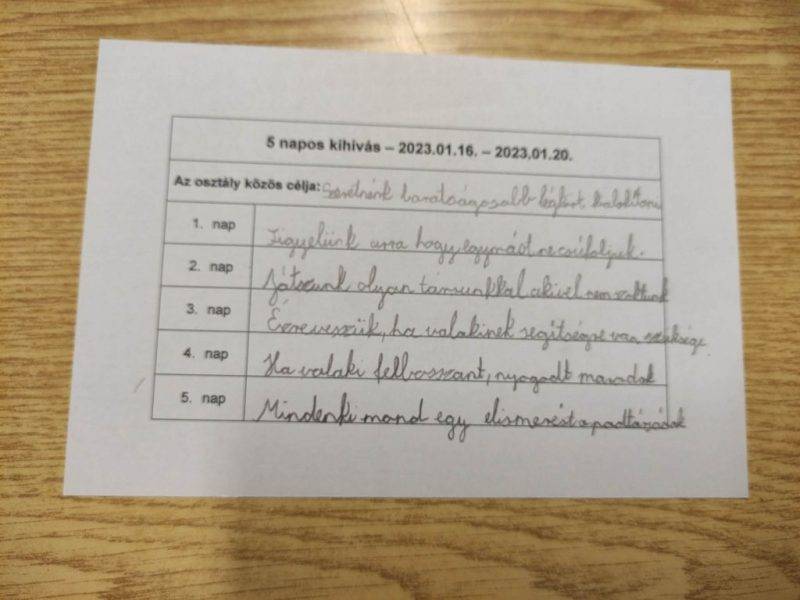 5 napos kihívás – 2023.01.16. – 2023.01.20.
Az osztály közös célja: Szeretnénk barátságosabb légkört kialakítani
1. nap Figyelünk arra hogy egymást ne csúfoljuk.
2. nap Játszunk olyan társunkkal akivel nem szoktunk
3. nap Észrevesszük, ha valakinek segítségre van szüksége.
4. nap Ha valaki felbosszant, nyugodt maradok
5. nap Mindenki mond egy elismerést a padtársának